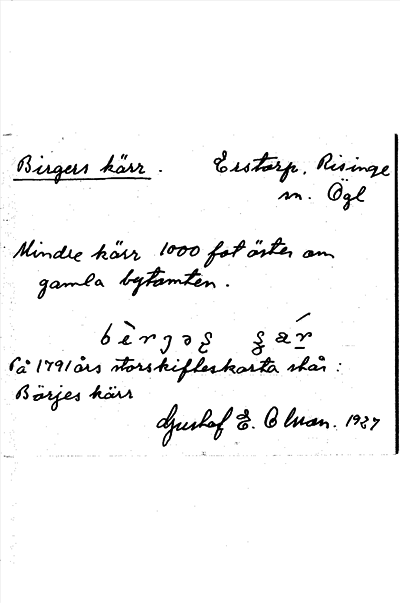 Birgers kärr. Erstorp, Risinge
sn. Ögl
Mindre kärr 1000 fot öster om
gamla bytomten.
På 1791 års storskifteskarta står:
Börjes kärr
Gustaf E. Olson. 1927